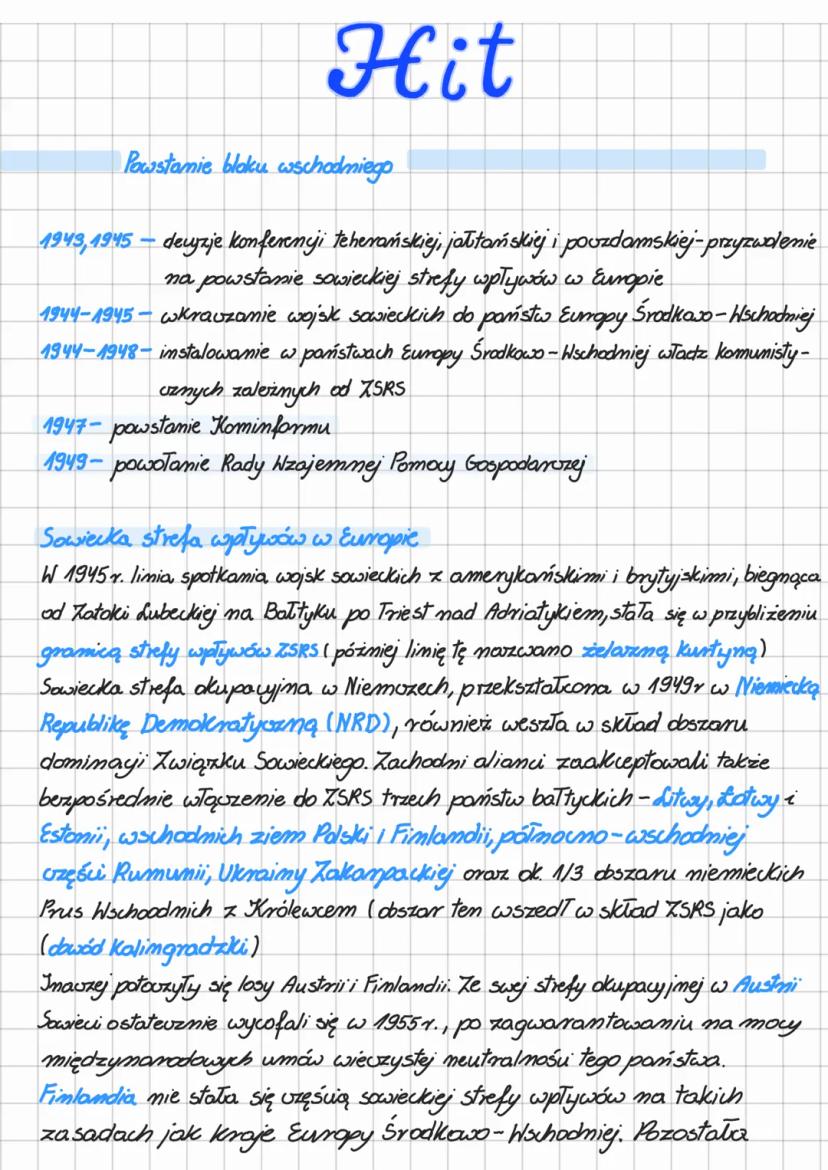 Hit
Powstanie bloku wschodniego
1943,1945 – decyzje konferencji teherańskiej, jałtańskiej i poczdamskiej-przyzwolenie
na powstanie sowieckiej strefy wpływów w Europie
1944-1945 – wkraczanie wojsk sowieckich do państw Europy Środkowo-Wschodniej
1944-1948 – instalowanie w państwach Europy Środkowo-Wschodniej władz komunisty-
cznych zależnych od ZSRS
1947 – powstanie Kominformu
1949 – powołanie Rady Wzajemnej Pomocy Gospodarczej
Sowiecka strefa wpływów w Europie
W 1945r. linia spotkania wojsk sowieckich z amerykańskimi i brytyjskimi, biegnąca
od Zatoki Lubeckiej na Bałtyku po Triest nad Adriatykiem, stała się w przybliżeniu
granicą strefy wpływów ZSRS (później linię tę nazwano żelazną kurtyną)
Sowiecka strefa okupacyjna w Niemczech, przekształcona w 1949r w Niemiecką
Republikę Demokratyczną (NRD), również weszła w skład obszaru
dominacji Związku Sowieckiego. Zachodni alianci zaakceptowali także
bezpośrednie włączenie do ZSRS trzech państw bałtyckich – Litwy, Łotwy i
Estonii, wschodnich ziem Polski i Finlandii, północno-wschodniej
części Rumunii, Ukrainy Zakarpackiej oraz ok. 1/3 obszaru niemieckich
Prus Wschoodnich z Królewcem (obszar ten wszedł w skład ZSRS jako
(obwód Kalingradzki)
Inaczej potoczyły się losy Austrii i Finlandii. Ze swej strefy okupacyjnej w Austrii
Sowieci ostatecznie wycofali się w 1955r., po zagwarantowaniu na mocy
międzynarodowych umów wieczystej neutralności tego państwa.
Finlandia nie stała się częścią sowieckiej strefy wpływów na takich
zasadach jak kraje Europy Środkowo-Wschodniej. Pozostała